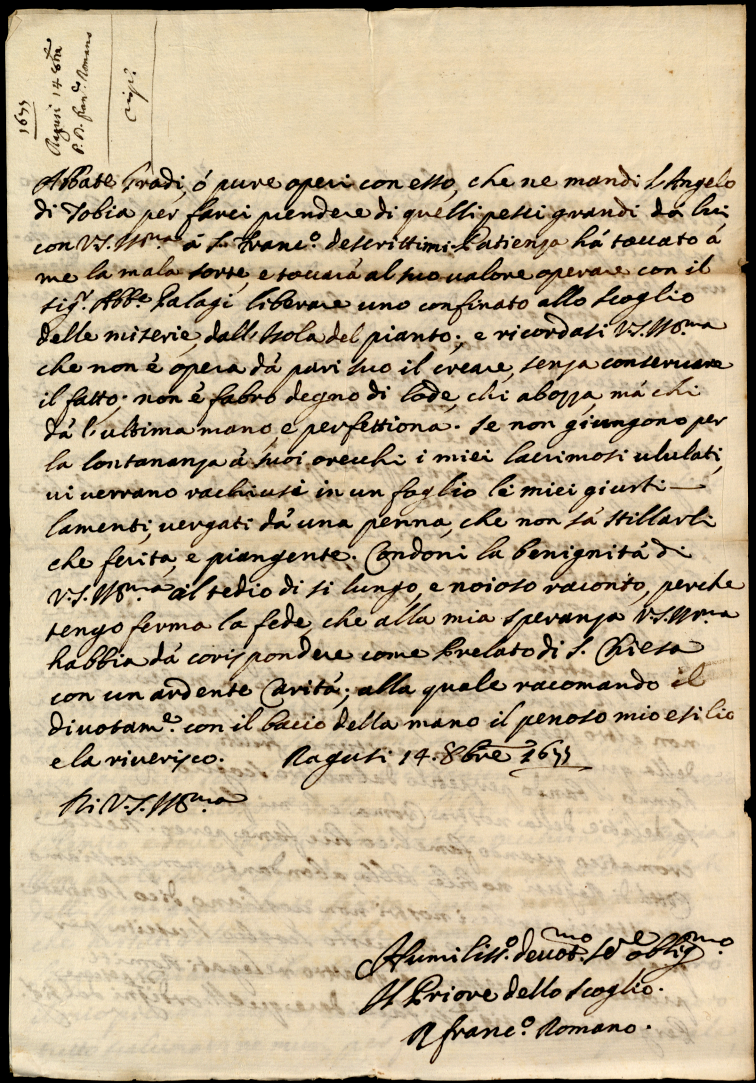 1677
Ragusi 14 8bre
P. R. Franco Romano
Abbate Gradi, ó pure operi con esso, che ne mandi l'Angelo
di Tobia per farci prendere di quelli pesci grandi dá lui
con V.S. Illma á S. Franco. descrittimi. Patienza há toccato á
me la mala sorte, e toccará al suo valore operare con il
Sigr. Abbe. Palagi liberare uno confinato allo scoglio
delle miserie, dall'Isola del pianto; e ricordasi V.S. Illma
che non é opera dá pari suo il creare, senza conservare
il fatto; non é fabro degno di lode, chi abozza, má chi
dá l'ultima mano e perfettiona. Se non giungono per
la lontananza á suoi orecchi i miei lacrimosi ululati,
vi verrano rachiusi in un foglio li miei giusti
lamenti, vergati dá una penna, che non sá stillarli
che ferita, e piangente. Condoni la benignitá di
V.S. Illma il tedio di si lungo, e noioso raconto, perche
tengo ferma la fede, che alla mia speranza V.S. Illma
habbia dá corispondere come Prelato di S. Chiesa
con un ardente Caritá; alla quale racomando il
divotame. con il bacio della mano il penoso mio esilio
e la riverisco. Ragusi 14. 8bre 1677
Di V.S. Illma
Humiliss.o devot.mo Se.re obblig.mo
Il Priore dello Scoglio.
R Franc.o Romano.